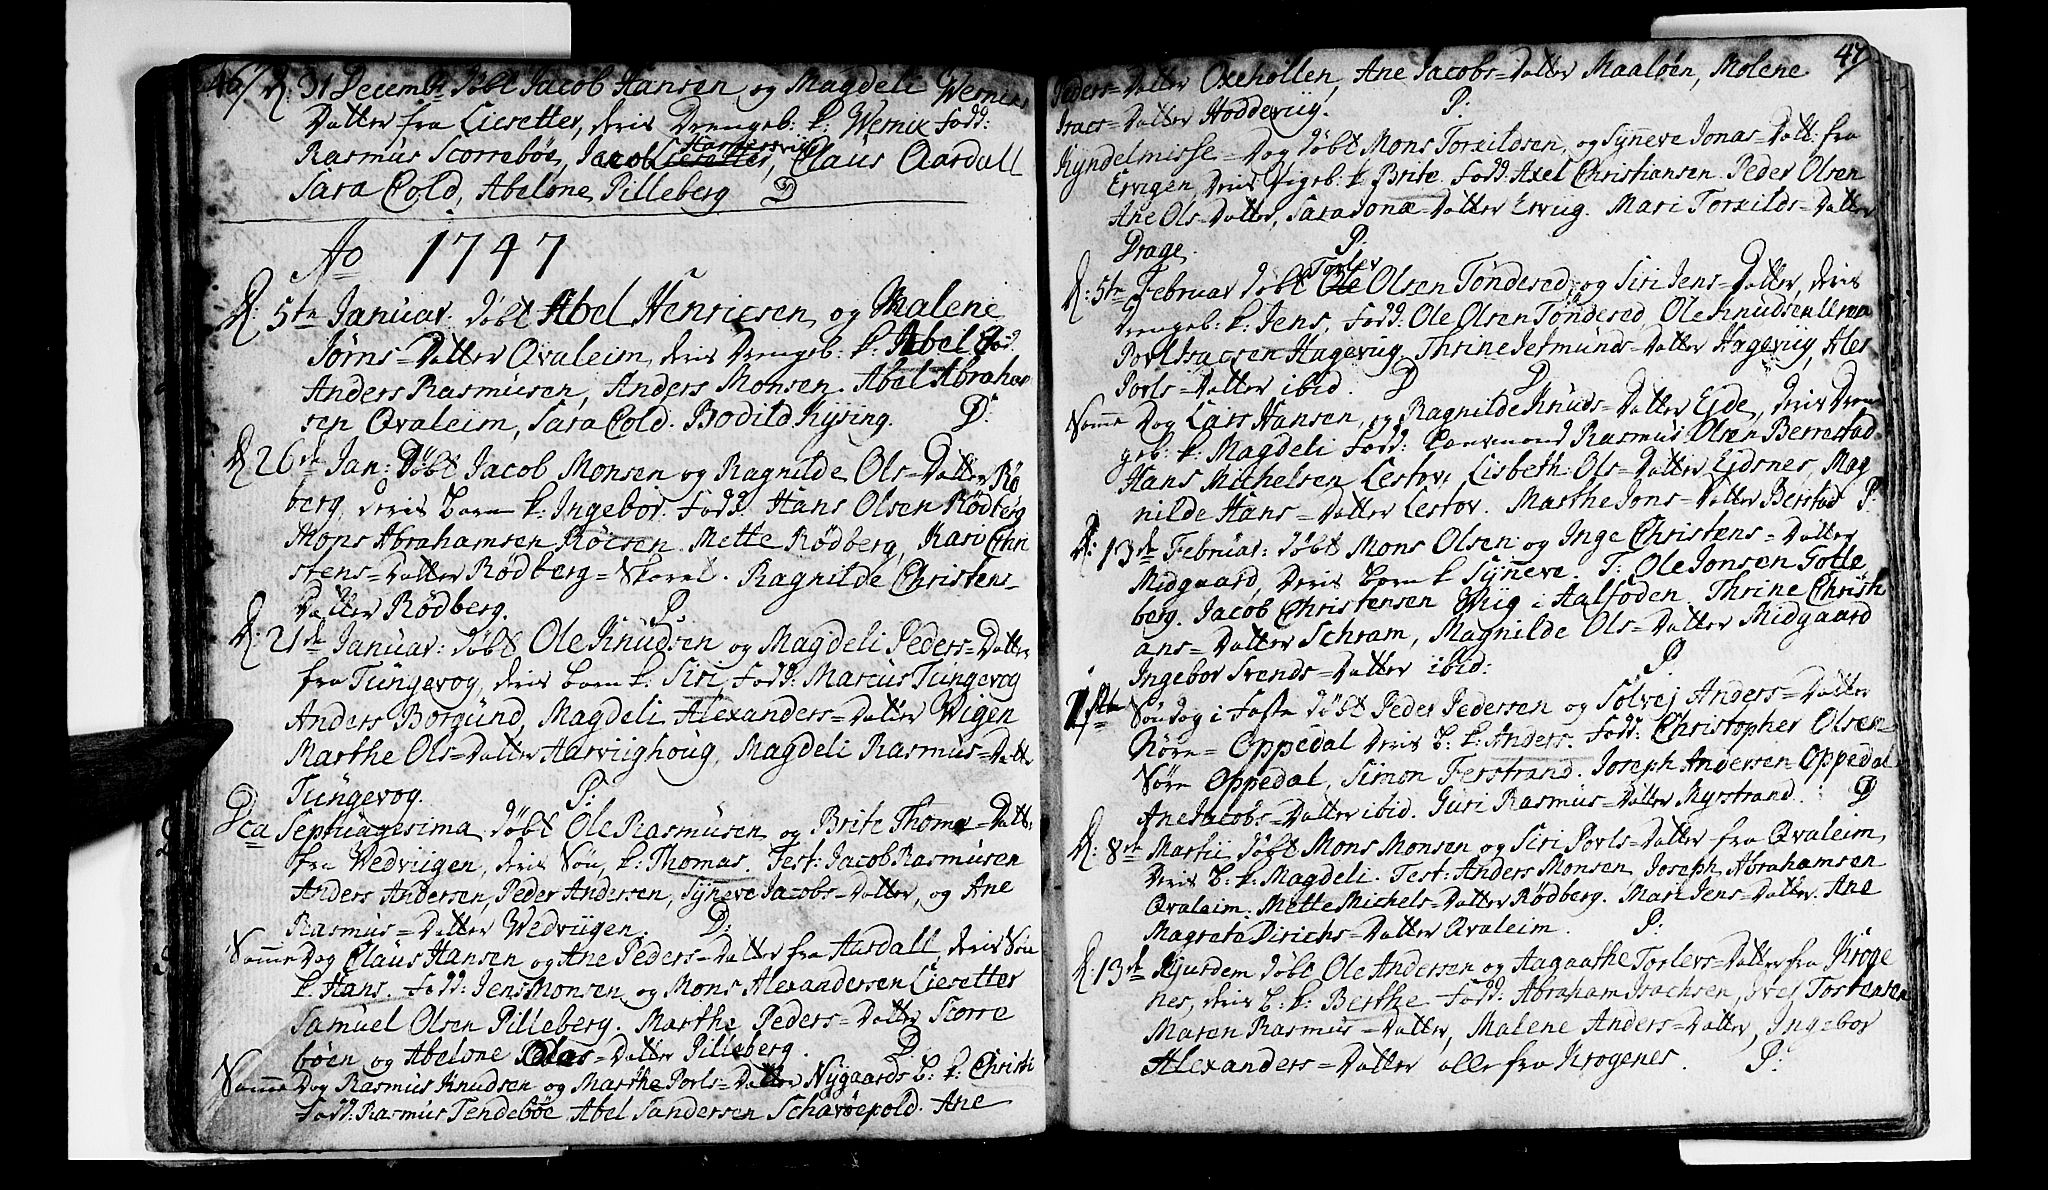 46/ D: 31 Decembr døbt Jacob Hansen og Magdeli Wernics
Datter fra Liesetter, deris Drengeb: k: Wernix Fadd:
Rasmus Scorrebøe, Jacob Liesetter, Claus Aardall
Sara Cold, Abelone Pilleberg D
Ao 1747
D: 5te Januar: døbt Abel Henricsen og Malene
Jørns=Datter Qvaleim, deris Drengeb: k: Abel Fad
Anders Rasmusen, Anders Monsen. Abel Abraham
sen Qvaleim, Sara Cold. Bodild Kysing. P:
D 26de Jan: Døbt Jacob Monsen og Ragnilde Ols=Datter Rø
berg, deris barn k: Ingebor. Fadd: Hans Olsen Rødberg
Mons Abrahamsen Røesen. Mette Rødberg, Kari Chri
stens=Datter Rødberg=Skorpe. Ragnilde Christens=
Datter Rødberg. P
D: 21de Januar: døbt Ole Knudsen og Magdeli Peders=Datter
fra Tungevog, deris barn k: Siri, Fadd: Marcus Tungevog
Anders Borgund, Magdeli Alexanders=Datter Vigen
Marthe Ols=Datter Harviighoug, Magdeli Rasmus=Datter
Tungevog. P:
Dca Septuagesima døbt Ole Rasmusen og Brite Thomæ=Datt:
fra Wedviigen, deris Søn k: Thomas. Test: Jacob Rasmusen
Anders Andersen, Peder Andersen, Syneve Jacobs=Datter, og Ane
Rasmus=Datter Wedviigen. D:
Samme Dag Claus Hansen og Ane Peders=Datter fra Aardall deris Søn
k: Hans. Fadd: Jens Monsen og Mons Alexandersen Liesetter
Samuel Olsen Pilleberg. Marthe Peders=Datter Scorre
bøen og Abelone Datter Pilleberg. D
Samme Dag Rasmus Knudsen og Marthe Povls=Datter Nygaards b: k: Christi
Fadd: Rasmus Tendebøe Abel Sandersen Scharøepold. Ane
47
Peders=Datter Oxehollen, Ane Jacobs=Datter Maaløen, Molene
Isacs=Datter Hoddeviig. P:
Kyndelmisse=Dag døbt Mons Torkildsen, og Syneve Jonas=Datt: fra
Ervigen, deris Pigeb: k: Brite Fadd: Axel Christiansen. Peder Olsen
Ane Ols=Datter, Sara Jonæ=Datter Ervug. Mari Torkilds=Datter
Drage. P:
D: 5te Februar døbt Torler Olsen Tønderød og Siri Jens=Datter, deris
Drengeb: k: Jens, Fadd: Ole Olsen Tønderød Ole Knudsen
Povl Isacsen Hagevug, Thrine Jetmunds=Datter Hagevug, Ales
Povls=Datter ibid. D
Samme Dag Lars Hansen, og Ragnilde Knuds=Datter Eide, deris
geb: k: Magdeli Fadd: Rasmus Olsen Berrestad
Hans Michelsen Lestov, Lisbeth Ols=Datter Eidsnes, Mag
nilde Hans=Datter Lestov. Marthe Jons=Datter Berstad P:
D: 13de Februar: døbt Mons Olsen og Inge Christens=Datter
Midgaard, deris barn k: Syneve. F: Ole Jonsen Totle
berg. Jacob Christensen Wiig i Aalfoden. Thrine Christi
ans=Datter Schram, Magnilde Ols=Datter Midgaard
Ingebor Svends=Datter ibid: P
1ste Søndag i Faste døbt Peder Pedersen og Sølvej Anders=Datter
Nørn=Oppedal deris b: k: Anders. Fadd: Christopher Olsen
Sørn Oppedal, Simon Ferstrand. Joseph Andersen Oppedal
Ane Jacobs=Datter ibid. Guri Rasmus=Datter Myrstrand. D
D: 8de Martii døbt Mons Monsen og Siri Povls=Datter fra Qvaleim,
deris b: k: Magdeli. Test: Anders Monsen, Joseph Abrahamsen
Qvaleim. Mette Michels=Datter Rødberg. Mari Jens=Datter. Ane
Magreta Dirichs=Datter Qvaleim. P:
D: 13de døbt Ole Andersen og Aagaathe Torlevs=Datter fra Kroge
nes, deris b: k: Berthe Fadd: Abraham Isachsen, Torstensen
Maren Rasmus=Datter, Malene Anders=Datter, Ingebor
Alexanders=Datter alle fra Krogenes. P: